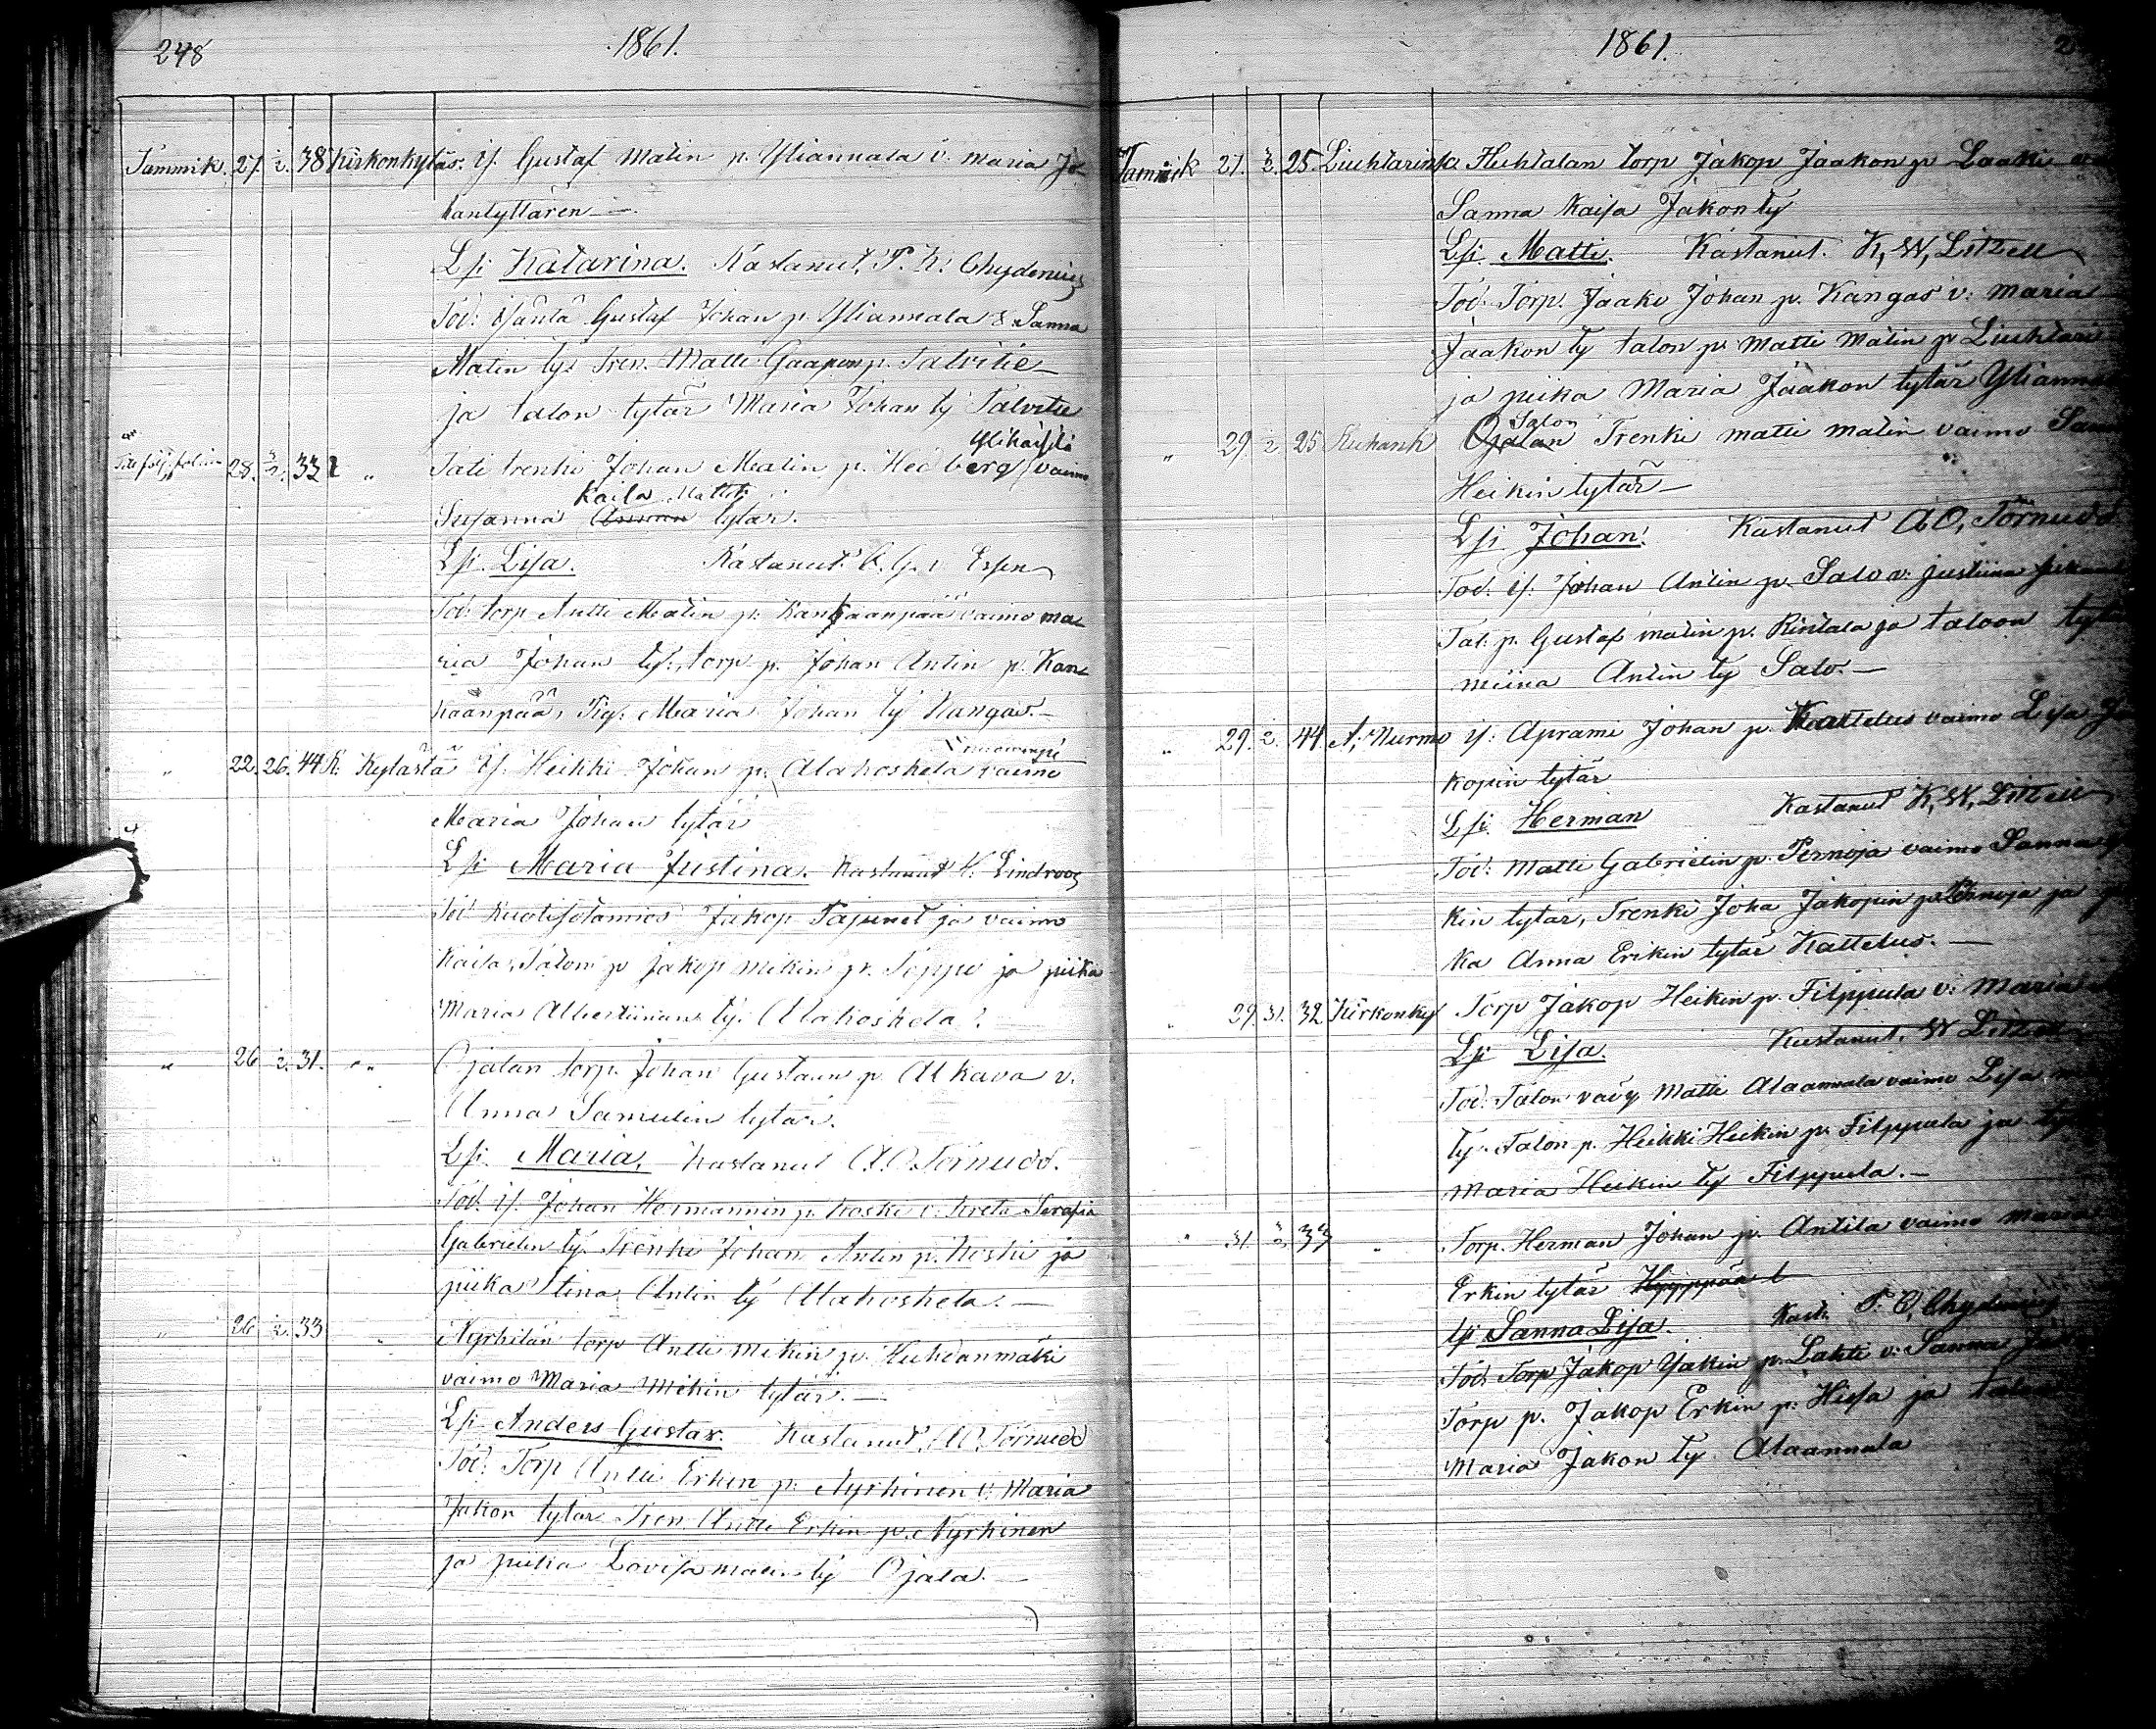 248
1861.
Tammik. 27. 2. 38 Kirkonkyläs: Is. Gustaf Matin p. Yliannala v. Maria Jo-
hantyttären —
Lsi Katarina. Kastanut, P. K. Chydenius
Tod: Isäntä Gustaf Johan p. Yliannala & Sanna
Matin ty. Tren. Matti Gaapon p. Talvitie
ja talon tytär Maria Johan ty Talvitie
28. 3/2. 33 " Tati trenki Johan Matin p. Hedberg vaimo
Kaisa Matti
Susanna tytär.
Lsi. Lisa. Kastanut C. G. v Essen
Tod: torp Antti Matin p. Kankaanpää vaimo Ma-
ria Johan ty:, torp p. Johan Antin p. Kan-
kaanpää, Maria Johan ty Kangas. —
" 22. 26. 44 K. Kylästä Is. Heikki Johan p. Alakoskela vaimo
Maria Johan tytär
Lsi Maria Justina. Kastanut K. Lindroos
Tod Ruotisotamies Jakop Tapunet ja vaimo
Kaisa, Talon p Jakop Mikin p. Seppo ja piika
Maria Albertiinan ty. Alakoskela.
" 26 2. 31. " Ojalan torp. Johan Gustaan p. Alkava v.
Anna Samulin tytär.
Lsi. Maria, Kastanut A. O. Törnudd.
Tod. Is. Johan Hermannin p. Koski v. Kreta Serafia
Gabrielin ty. Trenki Johan Antin p. Koski ja
piika Stina Antin ty Alakoskela. —
" 26 2. 33 " Nyrhilän torp Antti Mikin p. Huhdanmäki
vaimo Maria Mikin tytär. —
Lsi. Anders Gustaf. Kastanut, A O Törnudd
Tod: Torp Antti Erkin p. Nyrhinen v. Maria
Jakon tytär Tren. Antti Erkin p. Nyrhinen
ja piika Lovisa Matin ty Ojala. —
1861.
Tammik 27. 3. 25. Liuhtarinsa Huhtalan torp Jakop Jaakon p Laaki
Sanna Kaisa Jakon ty
Lsi. Matti. Kastanut. K, W, Litzell
Tod: Torp. Jaako Johan p. Kangas v: Maria
Jaakon ty talon p. Matti Matin p Liuhtari
ja piika Maria Jaakon tytär
Salon
" 29. 2 25 Ruhank Ojalan Trenki Matti Matin vaimo
Heikin tytär —
Lsi Johan. Kastanut A O, Törnudd
Tod. Is. Johan Antin p. Salo v. Justiina
Tal. p. Gustaf Matin p. Rintala ja taloon
Miina Antin ty Salo. —
" 29. 2. 44 A; Nurmo Is: Aprami Johan p. Kattelus vaimo Lisa
kopin tytär
Lsi. Herman Kastanut K, W, Litzell
Tod: Matti Gabrielin p. Pernoja vaimo Sanna
kin tytär, Trenki Joha Jakopin p. Pernoja ja
ka Anna Erikin tytär Kattelus. —
" 29. 31. 32 Kirkonky Torp Jakop Heikin p. Filppula v: Maria
Lsi Lisa. Kastanut, W Litzell
Tod: Talon vävy Matti Alaannala vaimo Lisa
ty. Talon p. Heikki Heikin p. Filppula ja
Maria Heikin ty Filppula. —
" 31. 3/2 33 " Torp. Herman Johan p. Antila vaimo Maria
Erkin tytär Hyyppää
Lsi Sanna Lisa. Kast. P. O, Chydenius
Tod: Torp Jakop p. Lahti v: Sanna
Torp p. Jakop Erkin p. Hissa ja talon
Maria Jakon ty Alaannala